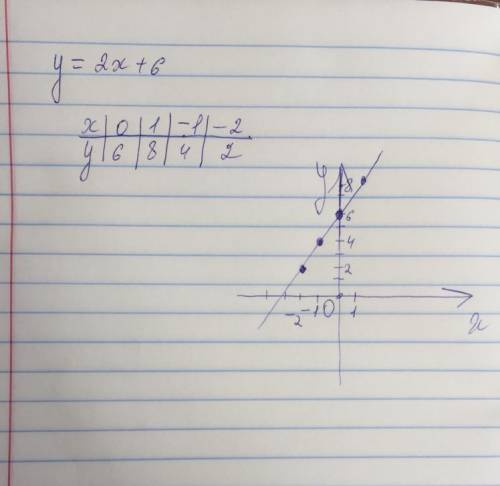 y = 2x + 6
x | 0 | 1 | -1 | -2
y | 6 | 8 | 4 | 2
y
8
6
4
2
-2 -1 0 1
x